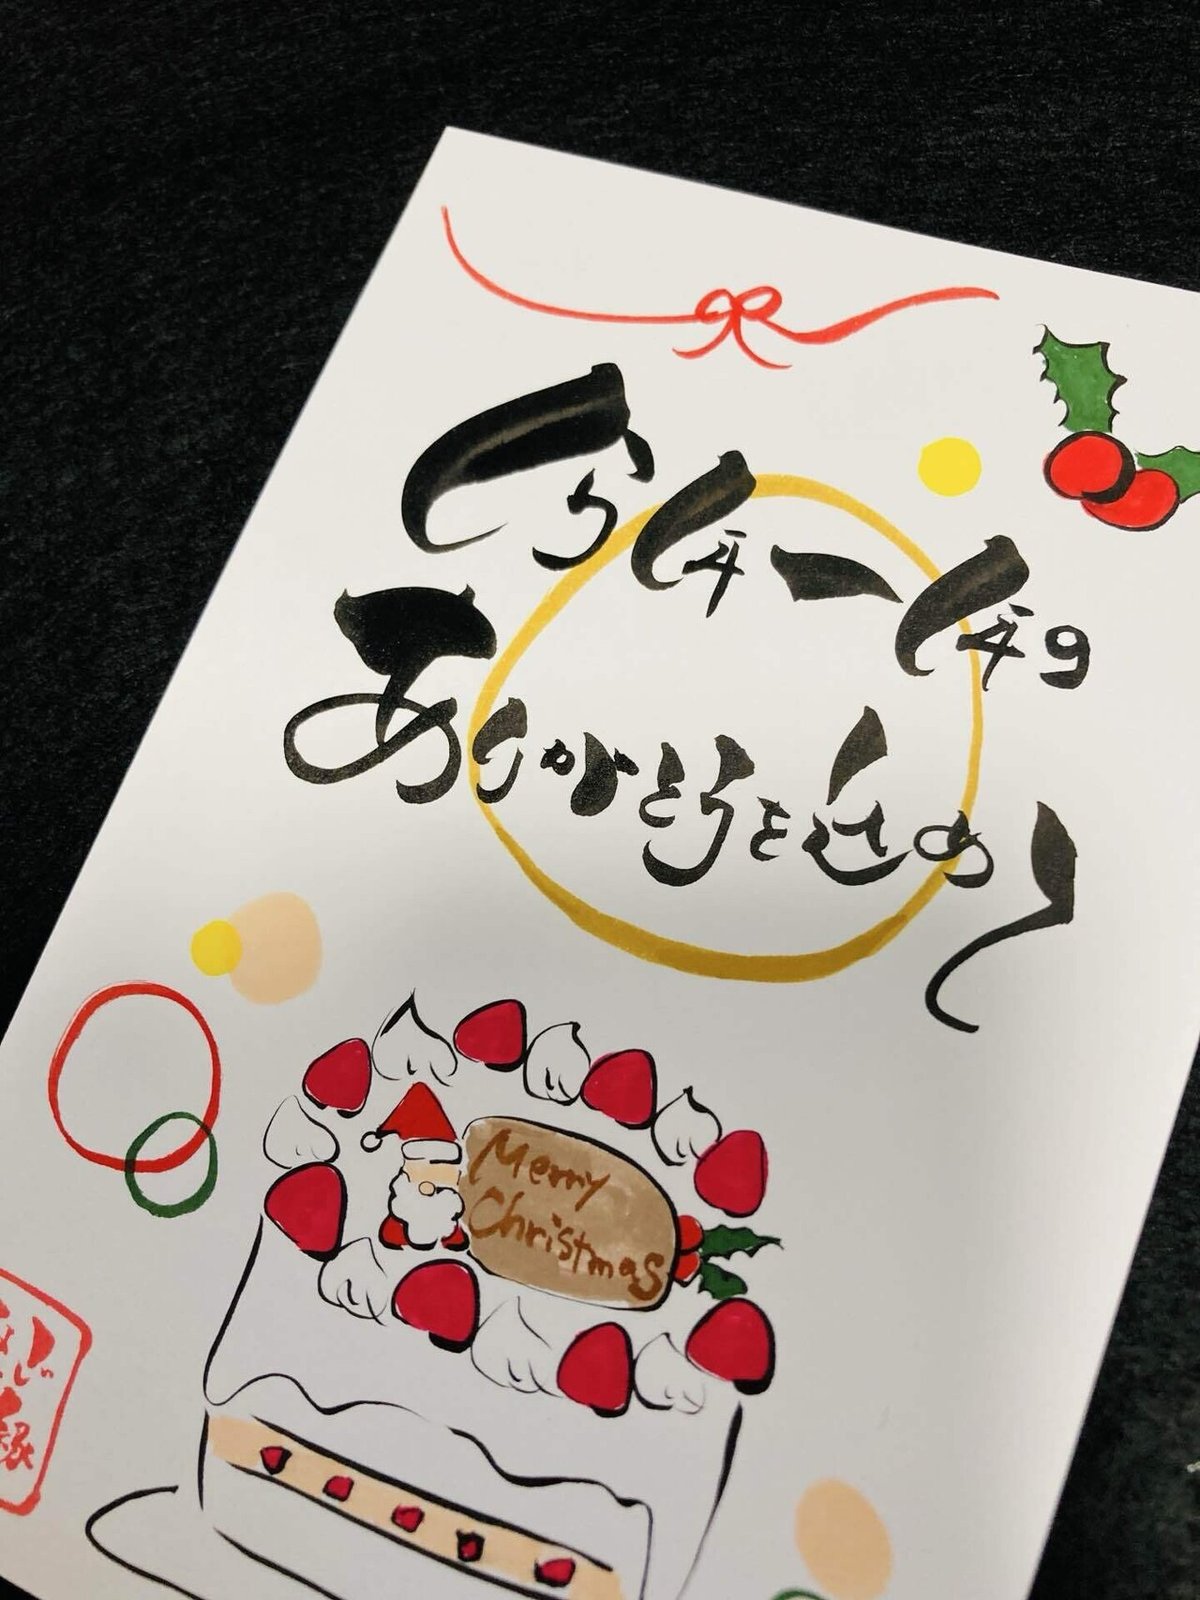 今年一年の
ありがとうを込めて
Merry
Christmas